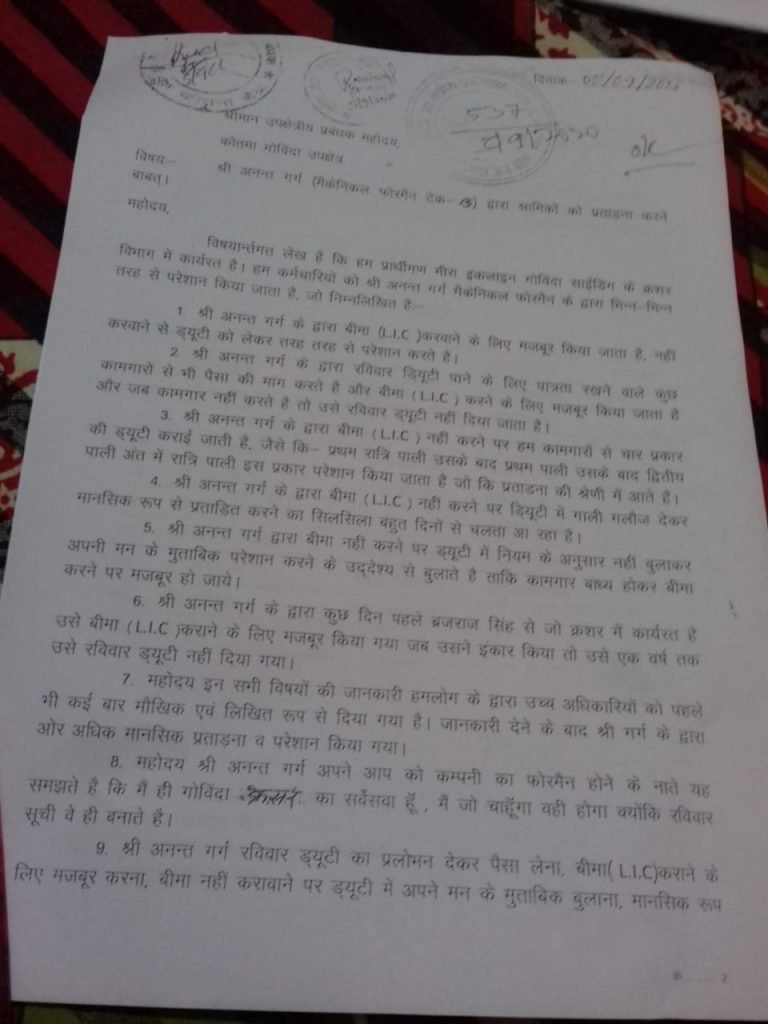 दिनांक
537
ok
श्रीमान उपक्षेत्रीय प्रबंधक महोदय,
कोतमा गोविंदा उपक्षेत्र
विषय:- श्री अनन्त गर्ग (मैकेनिकल फोरमैन टेक-B) द्वारा श्रामिकों को प्रताड़ना करने
बाबत्।
महोदय,
विषयार्न्तगत लेख है कि हम प्रार्थीगण मीरा इंकलाइन गोविंदा साईडिंग के क्रशर
विभाग मे कार्यरत है। हम कर्मचारियों को श्री अनन्त गर्ग मैकेनिकल फोरमैन के द्वारा भिन्न-भिन्न
तरह से परेशान किया जाता है, जो निम्नलिखित है:-
1. श्री अनन्त गर्ग के द्वारा बीमा (L.I.C )करवाने के लिए मजबूर किया जाता है, नहीं
करवाने से ड्यूटी को लेकर तरह तरह से परेशान करते है।
2. श्री अनन्त गर्ग के द्वारा रविवार डि्यूटी पाने के लिए पात्रता रखने वाले कुछ
कामगारों से भी पैसा की मांग करते है और बीमा ( L.I.C ) करने के लिए मजबूर किया जाता है
और जब कामगार नहीं करते है तो उसे रविवार ड्यूटी नहीं दिया जाता है।
3. श्री अनन्त गर्ग के द्वारा बीमा ( L.I.C ) नहीं करने पर हम कामगारों से चार प्रकार
की ड्यूटी कराई जाती है, जैसे कि- प्रथम रात्रि पाली उसके बाद प्रथम पाली उसके बाद द्वितीय
पाली अंत में रात्रि पाली इस प्रकार परेशान किया जाता है जो कि प्रताडना की श्रेणी में आते है।
4. श्री अनन्त गर्ग के द्वारा बीमा (L.I.C ) नहीं करने पर डि्यूटी में गाली गलौज देकर
मानसिक रूप से प्रताडित करने का सिलसिला बहुत दिनों से चलता आ रहा है।
5. श्री अनन्त गर्ग द्वारा बीमा नहीं करने पर ड्यूटी में नियम के अनुसार नहीं बुलाकर
अपनी मन के मुताबिक परेशान करने के उद्देश्य से बुलाते है ताकि कामगार बाध्य होकर बीमा
करने पर मजबूर हो जाये।
6. श्री अनन्त गर्ग के द्वारा कुछ दिन पहले ब्रजराज सिंह से जो क्रशर में कार्यरत है
उसे बीमा ( L.I.C )कराने के लिए मजबूर किया गया जब उसने इंकार किया तो उसे एक वर्ष तक
उसे रविवार ड्यूटी नहीं दिया गया।
7. महोदय इन सभी विषयों की जानकारी हमलोग के द्वारा उच्च अधिकारियों को पहले
भी कई बार मौखिक एवं लिखित रूप से दिया गया है। जानकारी देने के बाद श्री गर्ग के द्वारा
ओर अधिक मानसिक प्रताड़ना व परेशान किया गया।
8. महोदय श्री अनन्त गर्ग अपने आप को कम्पनी का फोरमैन होने के नाते यह
समझते है कि मै ही गोविंदा का सर्वेसवा हूँ , मै जो चाहूँगा वही होगा क्योंकि रविवार
सूची वे ही बनाते है।
9. श्री अनन्त गर्ग रविवार ड्यूटी का प्रलोभन देकर पैसा लेना, बीमा( L.I.C)कराने के
लिए मजबूर करना, बीमा नहीं करावाने पर ड्यूटी में अपने मन के मुताबिक बुलाना, मानसिक रूप